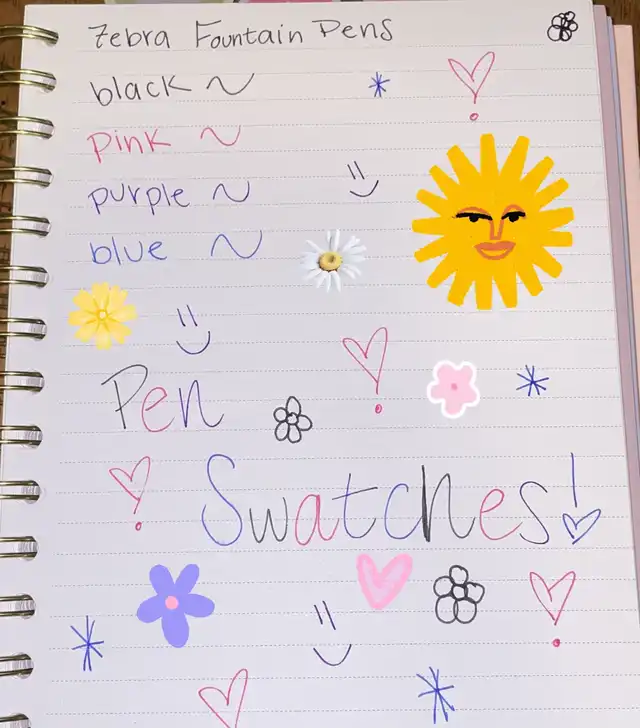 Zebra Fountain Pens
black ~
pink ~
purple ~
blue ~
Pen
Swatches!